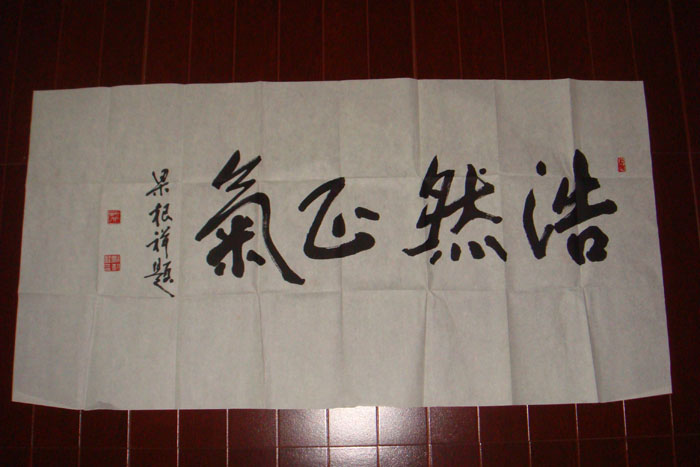 浩然正氣
根祥題